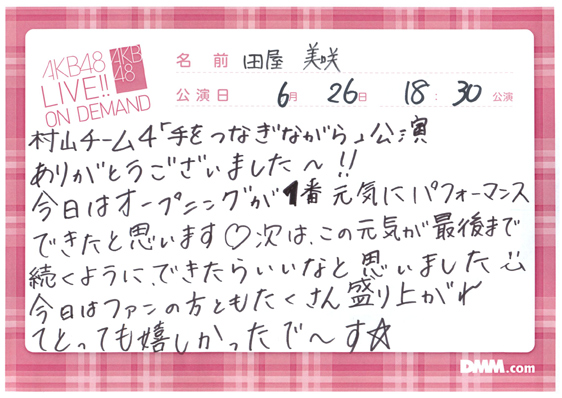 AKB48
LIVE!!
ON DEMAND
AKB
48
名前 田屋 美咲
公演日 6月 26日 18:30 公演
村山チーム4「手をつなぎながら」公演
ありがとうございました〜!!
今日はオープニングが1番元気にパフォーマンス
できたと思います♡次は、この元気が最後まで
続くように、できたらいいなと思いました
今日はファンの方ともたくさん盛り上がれ
てとっても嬉しかったで〜す☆
DMM.com